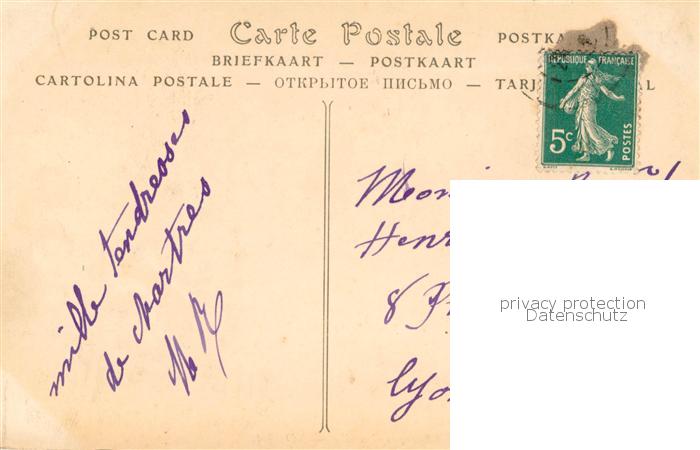 POST CARD Carte Postale POSTKA
BRIEFKAART — POSTKAART
CARTOLINA POSTALE — ОТКРЫТОЕ ПИСЬМО — TARJ AL
REPUBLIQUE FRANÇAISE
5c
POSTES
mille tendresses
de chartres
Henr
8
Lyo
privacy protection
Datenschutz